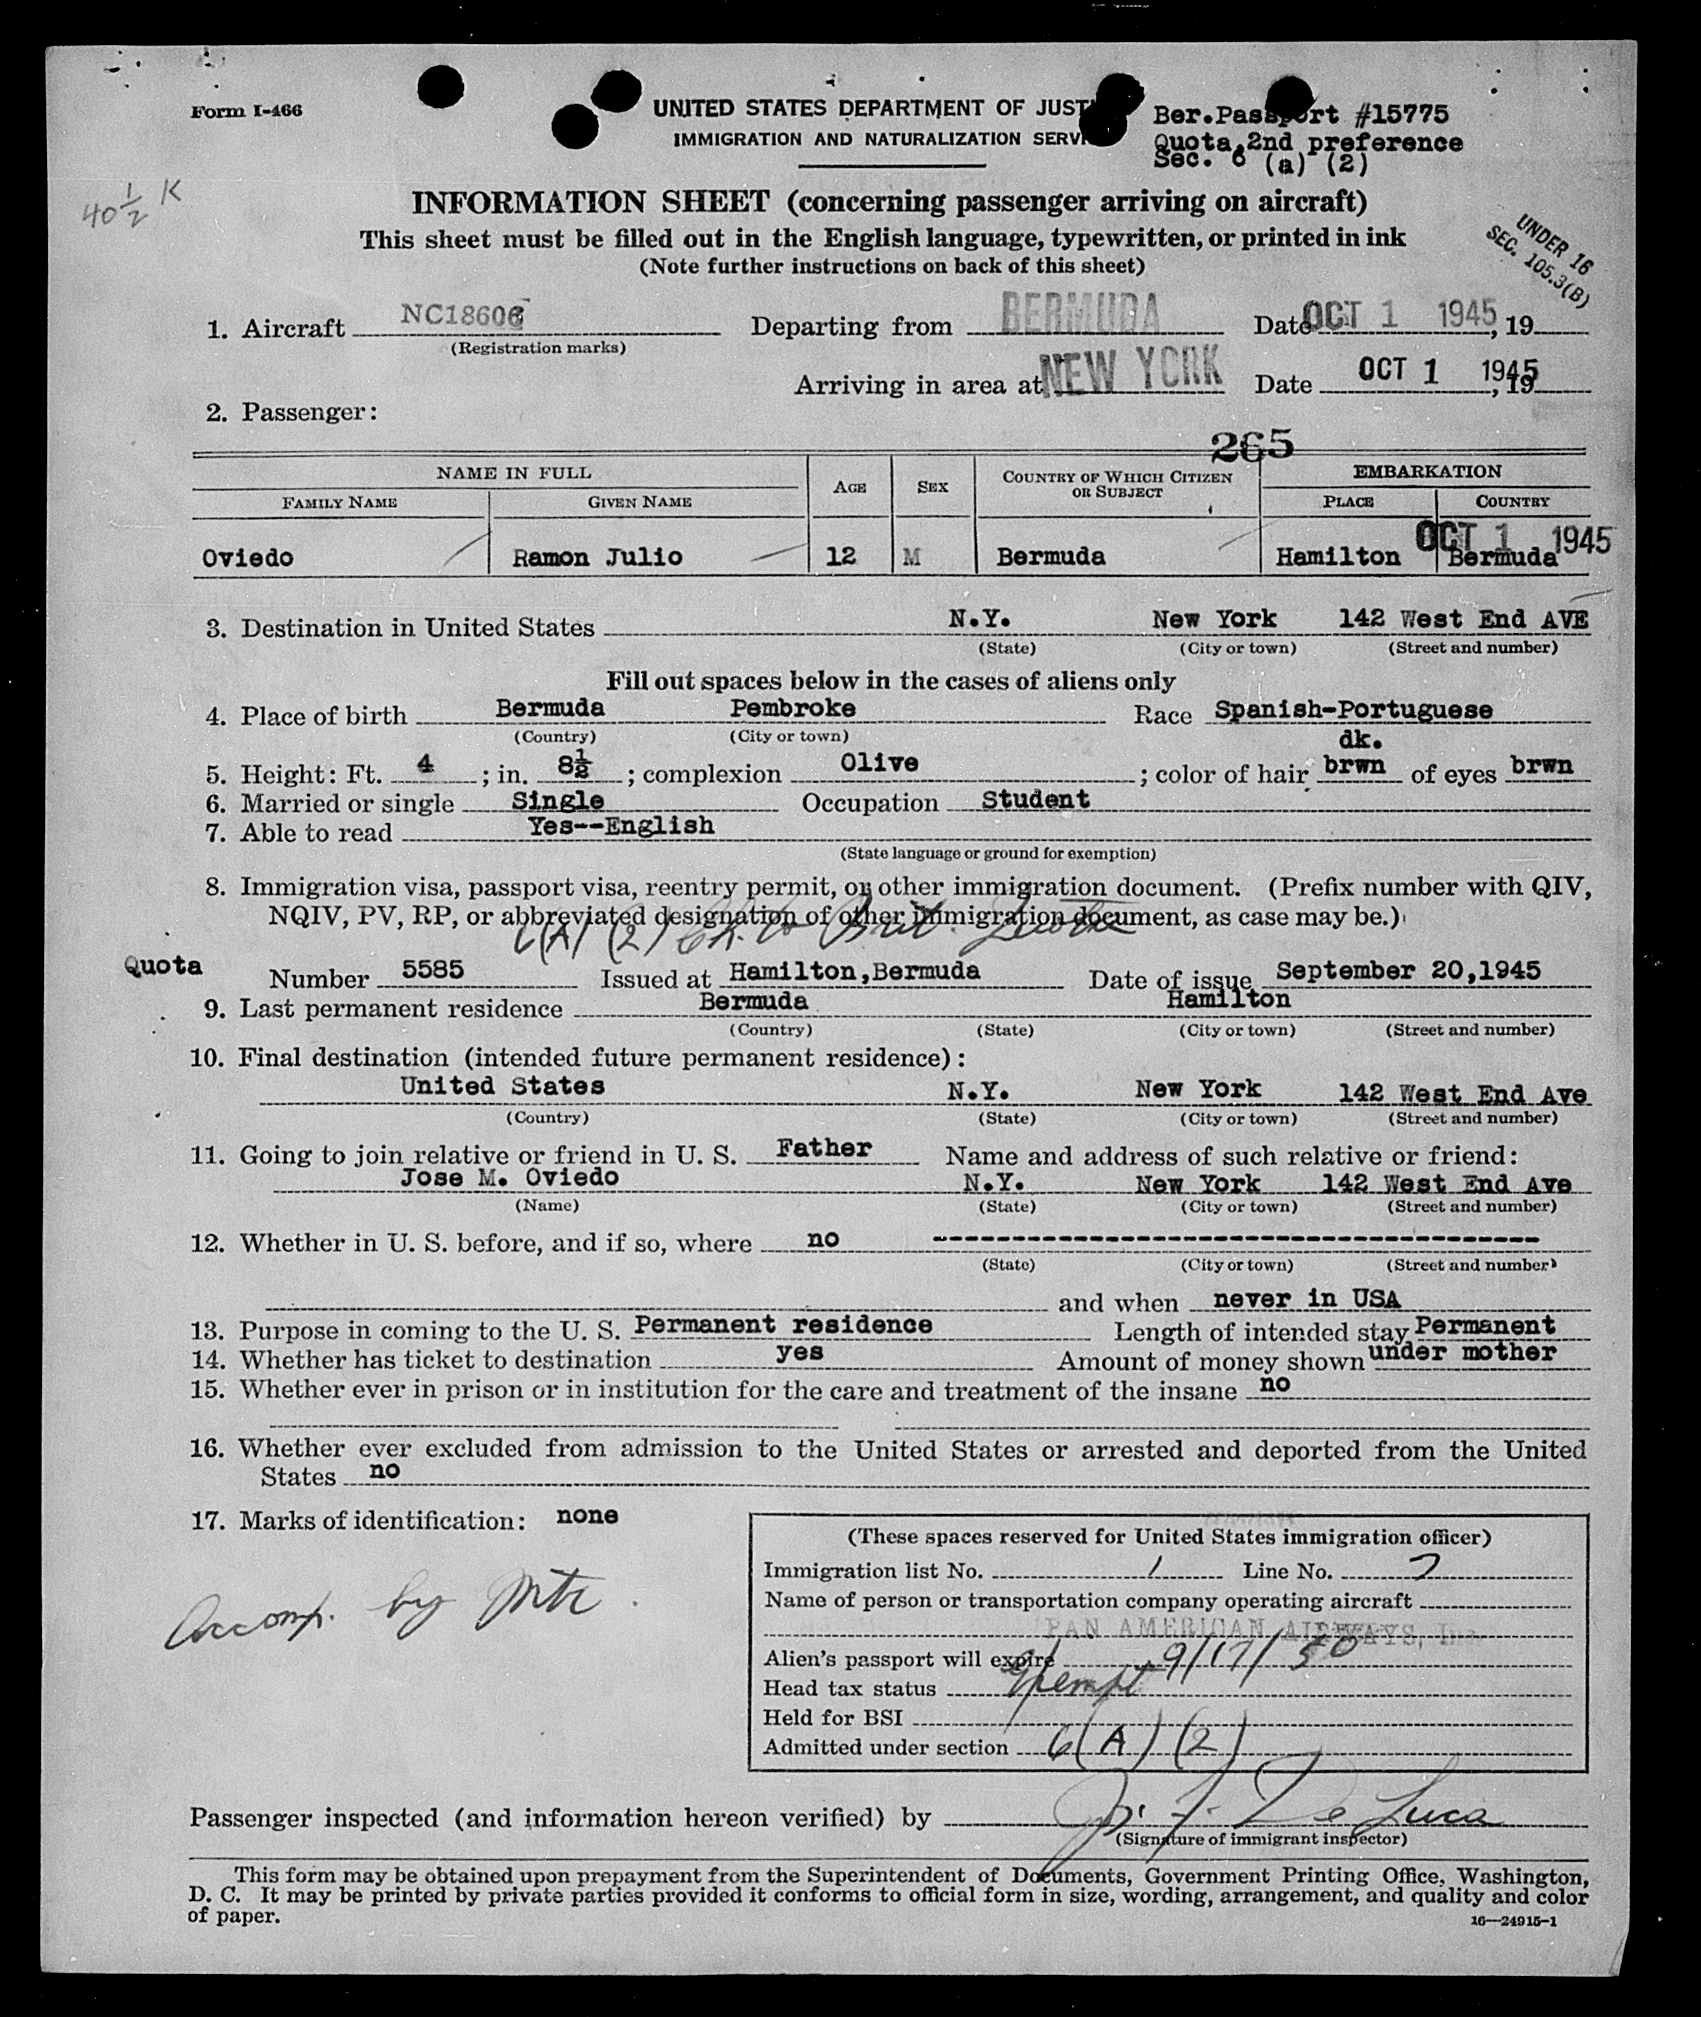 Form I-466
UNITED STATES DEPARTMENT OF JUST
IMMIGRATION AND NATURALIZATION SERVI
Ber.Passport #15775
Quota,2nd preference
Sec. 6 (a) (2)
40 1/2 K
INFORMATION SHEET (concerning passenger arriving on aircraft)
This sheet must be filled out in the English language, typewritten, or printed in ink
(Note further instructions on back of this sheet)
UNDER 16
SEC. 105.3(B)
1. Aircraft NC18606 Departing from BERMUDA Date OCT 1 1945, 19
(Registration marks)
Arriving in area at NEW YORK Date OCT 1 1945, 19
2. Passenger:
265
NAME IN FULL AGE SEX COUNTRY OF WHICH CITIZEN OR SUBJECT EMBARKATION
FAMILY NAME GIVEN NAME PLACE COUNTRY
OCT 1 1945
Oviedo Ramon Julio 12 M Bermuda Hamilton Bermuda
3. Destination in United States N.Y. New York 142 West End AVE
(State) (City or town) (Street and number)
Fill out spaces below in the cases of aliens only
4. Place of birth Bermuda Pembroke Race Spanish-Portuguese
(Country) (City or town)
dk.
5. Height: Ft. 4 ; in. 8½ ; complexion Olive ; color of hair brwn of eyes brwn
6. Married or single Single Occupation Student
7. Able to read Yes--English
(State language or ground for exemption)
8. Immigration visa, passport visa, reentry permit, or other immigration document. (Prefix number with QIV,
NQIV, PV, RP, or abbreviated designation of other immigration document, as case may be.)
6(A) (2) Ch. to Brit. Quota
Quota Number 5585 Issued at Hamilton,Bermuda Date of issue September 20,1945
9. Last permanent residence Bermuda Hamilton
(Country) (State) (City or town) (Street and number)
10. Final destination (intended future permanent residence):
United States N.Y. New York 142 West End Ave
(Country) (State) (City or town) (Street and number)
11. Going to join relative or friend in U. S. Father Name and address of such relative or friend:
Jose M. Oviedo N.Y. New York 142 West End Ave
(Name) (State) (City or town) (Street and number)
12. Whether in U. S. before, and if so, where no ---------------------------------------
(State) (City or town) (Street and number)
and when never in USA
13. Purpose in coming to the U. S. Permanent residence Length of intended stay Permanent
14. Whether has ticket to destination yes Amount of money shown under mother
15. Whether ever in prison or in institution for the care and treatment of the insane no
16. Whether ever excluded from admission to the United States or arrested and deported from the United
States no
17. Marks of identification: none
Accomp. by Mtr.
(These spaces reserved for United States immigration officer)
Immigration list No. 1 Line No. 7
Name of person or transportation company operating aircraft
PAN AMERICAN AIRWAYS, Inc.
Alien's passport will expire 9/17/50
Head tax status Exempt
Held for BSI
Admitted under section 6(A) (2)
Passenger inspected (and information hereon verified) by J. F. De Luca
(Signature of immigrant inspector)
This form may be obtained upon prepayment from the Superintendent of Documents, Government Printing Office, Washington,
D. C. It may be printed by private parties provided it conforms to official form in size, wording, arrangement, and quality and color
of paper.
16—24915-1